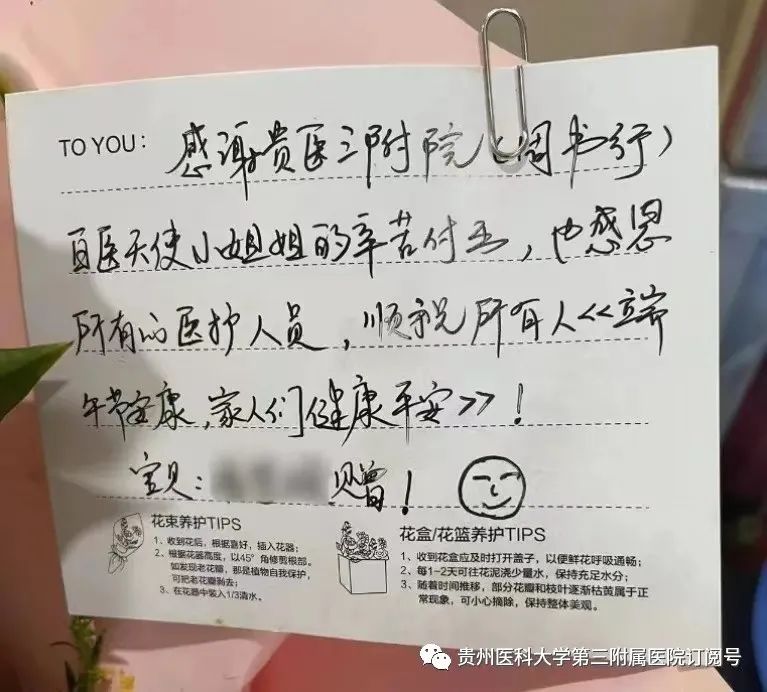 TO YOU: 感谢贵医三附院（周书行）
百医天使小姐姐的辛苦付出，也感恩
所有的医护人员，顺祝所有人<<端
午节安康，家人们健康平安>>！
宝贝： 赠！
花束养护TIPS
1、收到花后，根据喜好，插入花器；
2、根据花器高度，以45°角修剪根部。
如发现老花瓣，那是植物自我保护，
可把老花瓣剥去；
3、在花器中装入1/3清水。
花盒/花篮养护TIPS
1、收到花盒应及时打开盖子，以便鲜花呼吸通畅；
2、每1-2天可往花泥浇少量水，保持充足水分；
3、随着时间推移，部分花瓣和枝叶逐渐枯黄属于正
常现象，可小心摘除，保持整体美观。
贵州医科大学第三附属医院订阅号